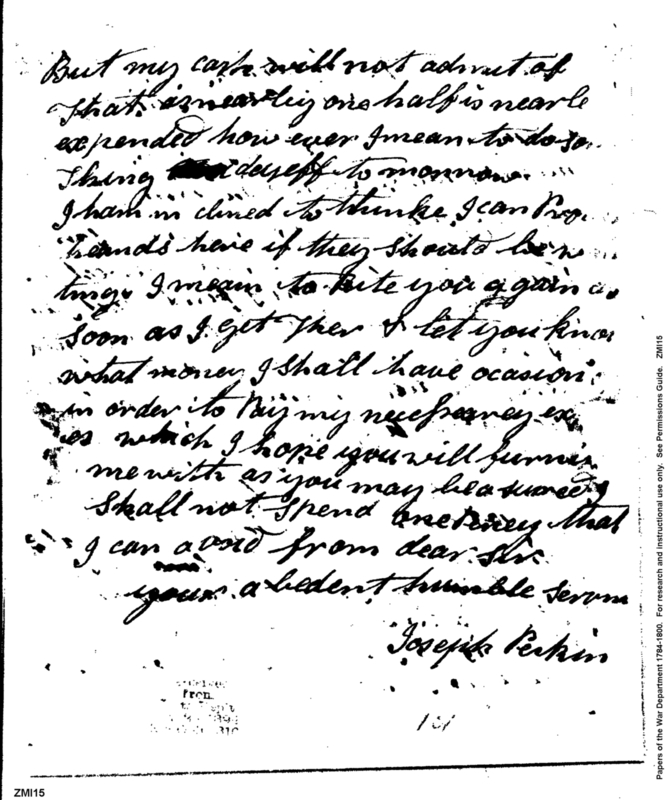 But my cash will not admit of
that is nearly one half is nearle
expended how ever I mean to do so
thing dayeff to morrow
I ham in clined to thinke I can Pro
hands here if they should be w
ting I mean to Rite you again as
soon as I get ther & let you know
what money I shall have ocasion
in order to Pay my necessarey ex
es which I hope you will furni
me with as you may be asured I
shall not spend one Peney that
I can avoid from dear sir
your abedent humble servn
Joseph Perkin
from
181
ZMI15
Papers of the War Department 1784-1800. For research and instructional use only. See Permissions Guide. ZMI15